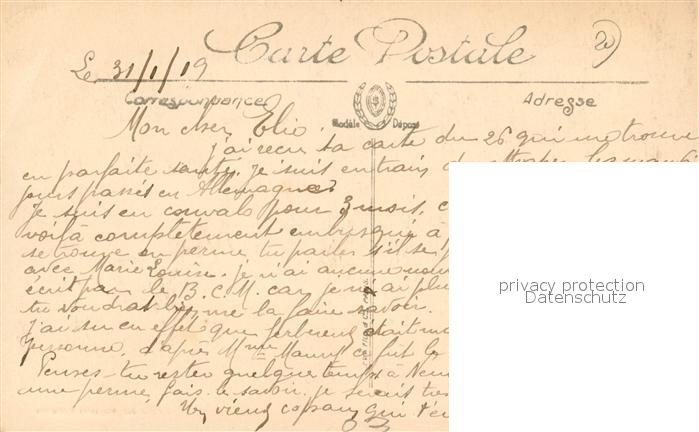 Carte Postale
Le 31/1/19
Correspondance
Adresse
Modèle Déposé
Mon cher Elio
J'ai reçu ta carte du 26 qui me trouve
en parfaite santé. Je suis en train de les mauvais
jours passés en Allemagne
Je suis en convalo pour 3 mois.
voilà complètement embusqué à
se trouve en perme, tu parles s'il se
avec Marie Louise. je n'ai aucune
écrit par le B.C.M. car je n'ai plus
tu voudrais me la faire savoir.
J'ai su en effet que était
personne, d'après Mme ce fut le
Penses-tu rester quelque temps à
une perme, fais le savoir. je serait très
Un vieux copain qui t'en
privacy protection
Datenschutz